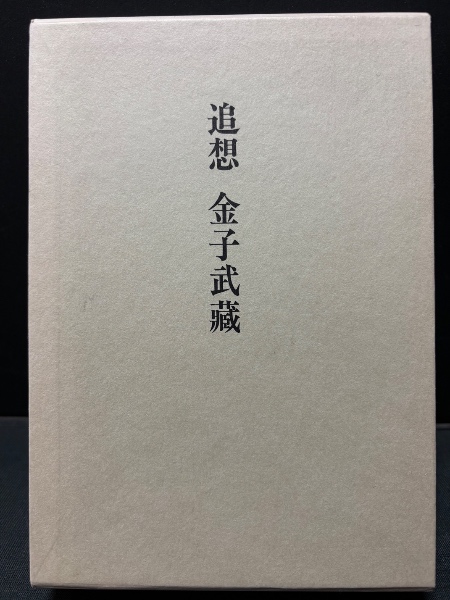 追想 金子武藏